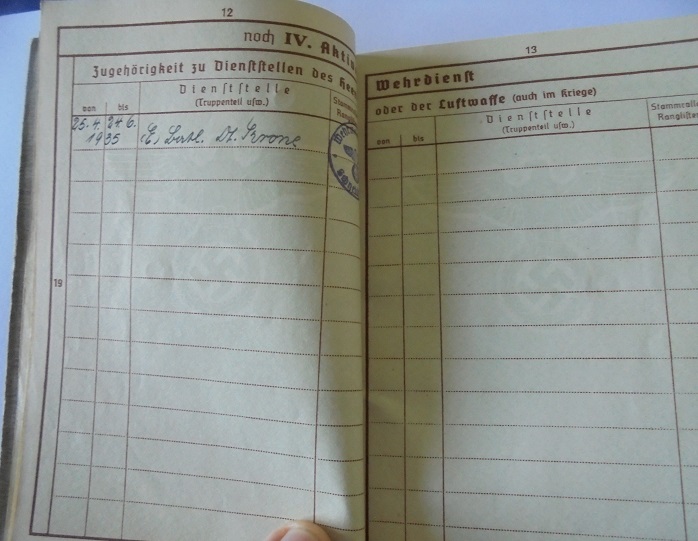 12
noch IV. Aktiv
Zugehörigkeit zu Dienststellen des Heer
von bis
Dienststelle
(Truppenteil usw.)
Stamm
Ranglis
25. 4. 24 6.
1935
E. Batl. Dt. Krone
19
13
Wehrdienst
oder der Luftwaffe (auch im Kriege)
von bis
Dienststelle
(Truppenteil usw.)
Stammrolle
Ranglisten